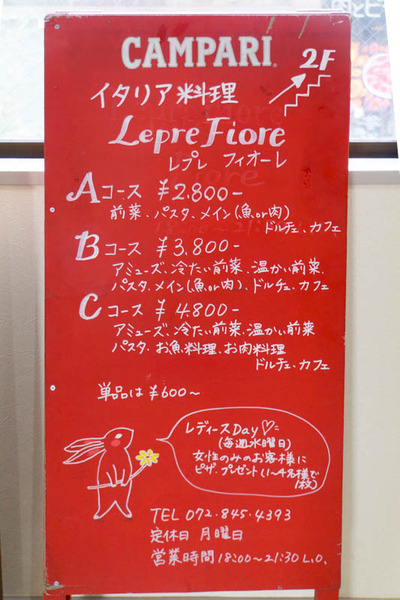 CAMPARI
2F
イタリア料理
Lepre Fiore
レプレ フィオーレ
Aコース ¥2.800-
前菜、パスタ、メイン(魚or肉)
ドルチェ、カフェ
Bコース ¥3.800-
アミューズ、冷たい前菜、温かい前菜、
パスタ、メイン(魚or肉)、ドルチェ、カフェ
Cコース ¥4800-
アミューズ、冷たい前菜、温かい前菜
パスタ、お魚料理、お肉料理
ドルチェ、カフェ
単品は¥600~
レディースDay♡
(毎週水曜日)
女性のみのお客様に
ピザ、プレゼント(1~4名様で
1枚)
TEL 072-845-4393
定休日 月曜日
営業時間 18:00~21:30 L.O.